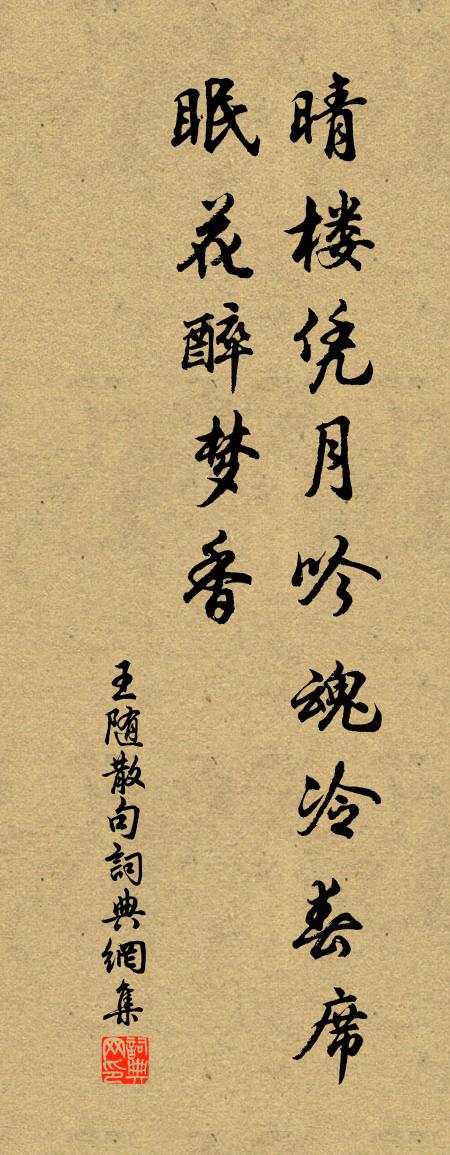 晴楼凭月吟魂冷春席
眠花醉梦香
王随散句詞典網集
詞典网印